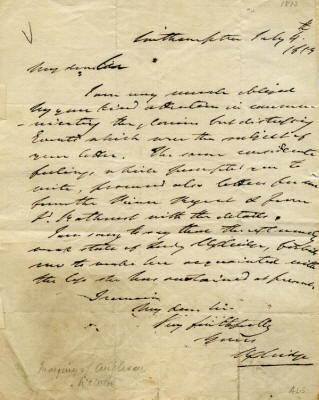 1813
Southampton July 4th
1813
My dear Sir
I am very much obliged
by your kind attention in commu-
nicating the glorious but distressing
Events which were the subject of
your letter. The same considerate
feelings, which prompted you to
write, procured also letters
from the Prince Regent & from
Ld. Bathurst with the details.
I am sorry to say that the extremely
weak state of Lady Uxbridge, forbids
me to make her acquainted with
the loss she has sustained at present.
I remain
My dear Sir
Very faithfully
Yours
Uxbridge
Marquess of Anglesea
ALS